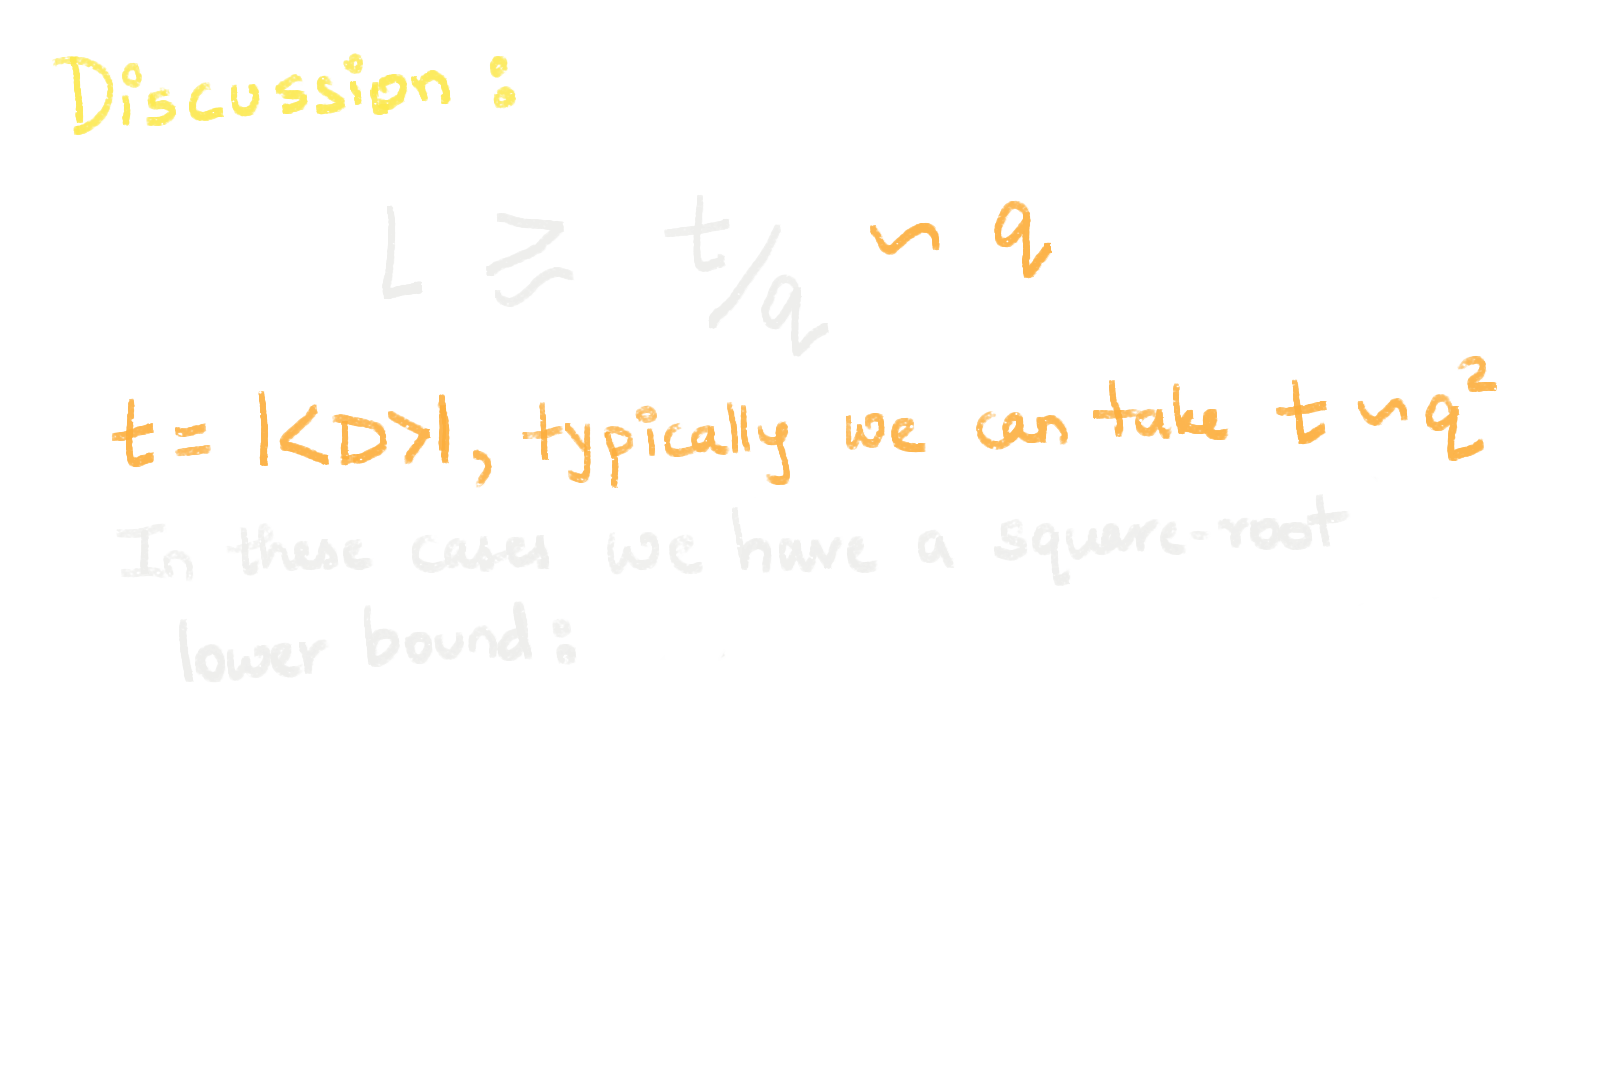 Discussion:
L ≳ t/q ~ q
t = |<D>|, typically we can take t ~ q²
In these cases we have a square-root
lower bound: